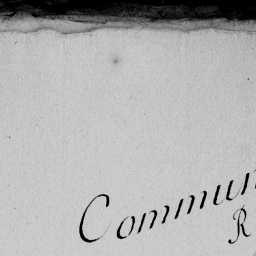 Commun
R